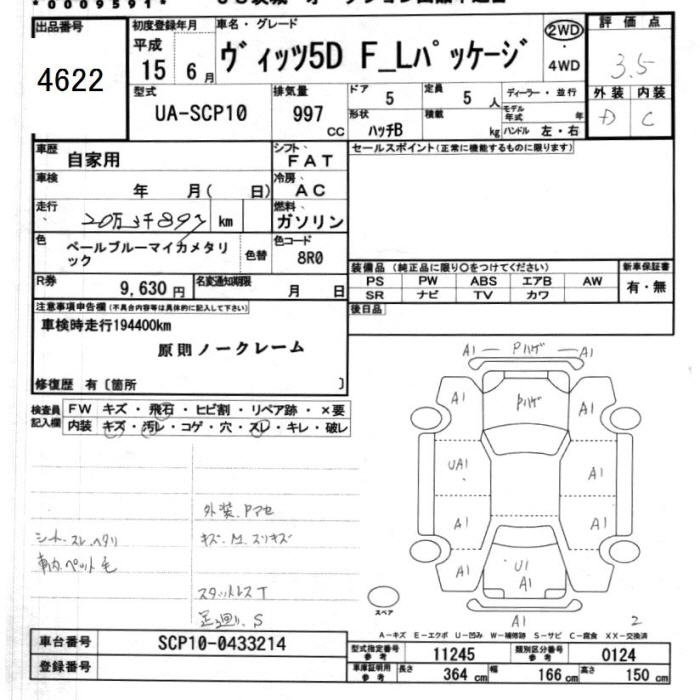 *0009591*
出品番号
4622
初度登録年月
平成
15年6月
車名・グレード
ヴィッツ5D F_Lパッケージ
2WD
・
4WD
評価点
3.5
外装 内装
D C
型式
UA-SCP10
排気量
997
CC
ドア
5
定員
5人
ディーラー・並行
形状
ハッチB
積載
kg
モデル年式 年
ハンドル 左・右
車歴
自家用
シフト
FAT
セールスポイント(正常に機能するものに限ります)
車検
年 月( 日)
冷房
AC
走行
20万3千897 km
燃料
ガソリン
色
ペールブルーマイカメタリック
色替
色コード
8R0
装備品(純正品に限り○をつけてください)
PS PW ABS エアB AW
SR ナビ TV カワ
新車保証書
有・無
R券
9,630円
名変通知期限
月 日
後日品
注意事項申告欄(不具合内容等は具体的に記入して下さい)
車検時走行194400km
原則ノークレーム
修復歴 有〔箇所 〕
検査員記入欄
FW キズ・飛石・ヒビ割・リペア跡・×要
内装 キズ・汚レ・コゲ・穴・スレ・キレ・破レ
外装、Pマセ
シート、スレ、ヘタリ
キズ、M、スリキズ
車内、ペット毛
スタットレスT
足廻り、S
A1 Pハゲ A1
A1 Pハゲ A1
UA1 A1
A1 A1
A1 U1 A1 A1
スペア
A1
2
A-キズ E-エクボ U-凹み W-補修跡 S-サビ C-腐食 XX-交換済
車台番号
SCP10-0433214
登録番号
型式指定番号 参考
11245
類別区分番号 参考
0124
車庫証明用 参考
長さ 364 cm
幅 166 cm
高さ 150 cm